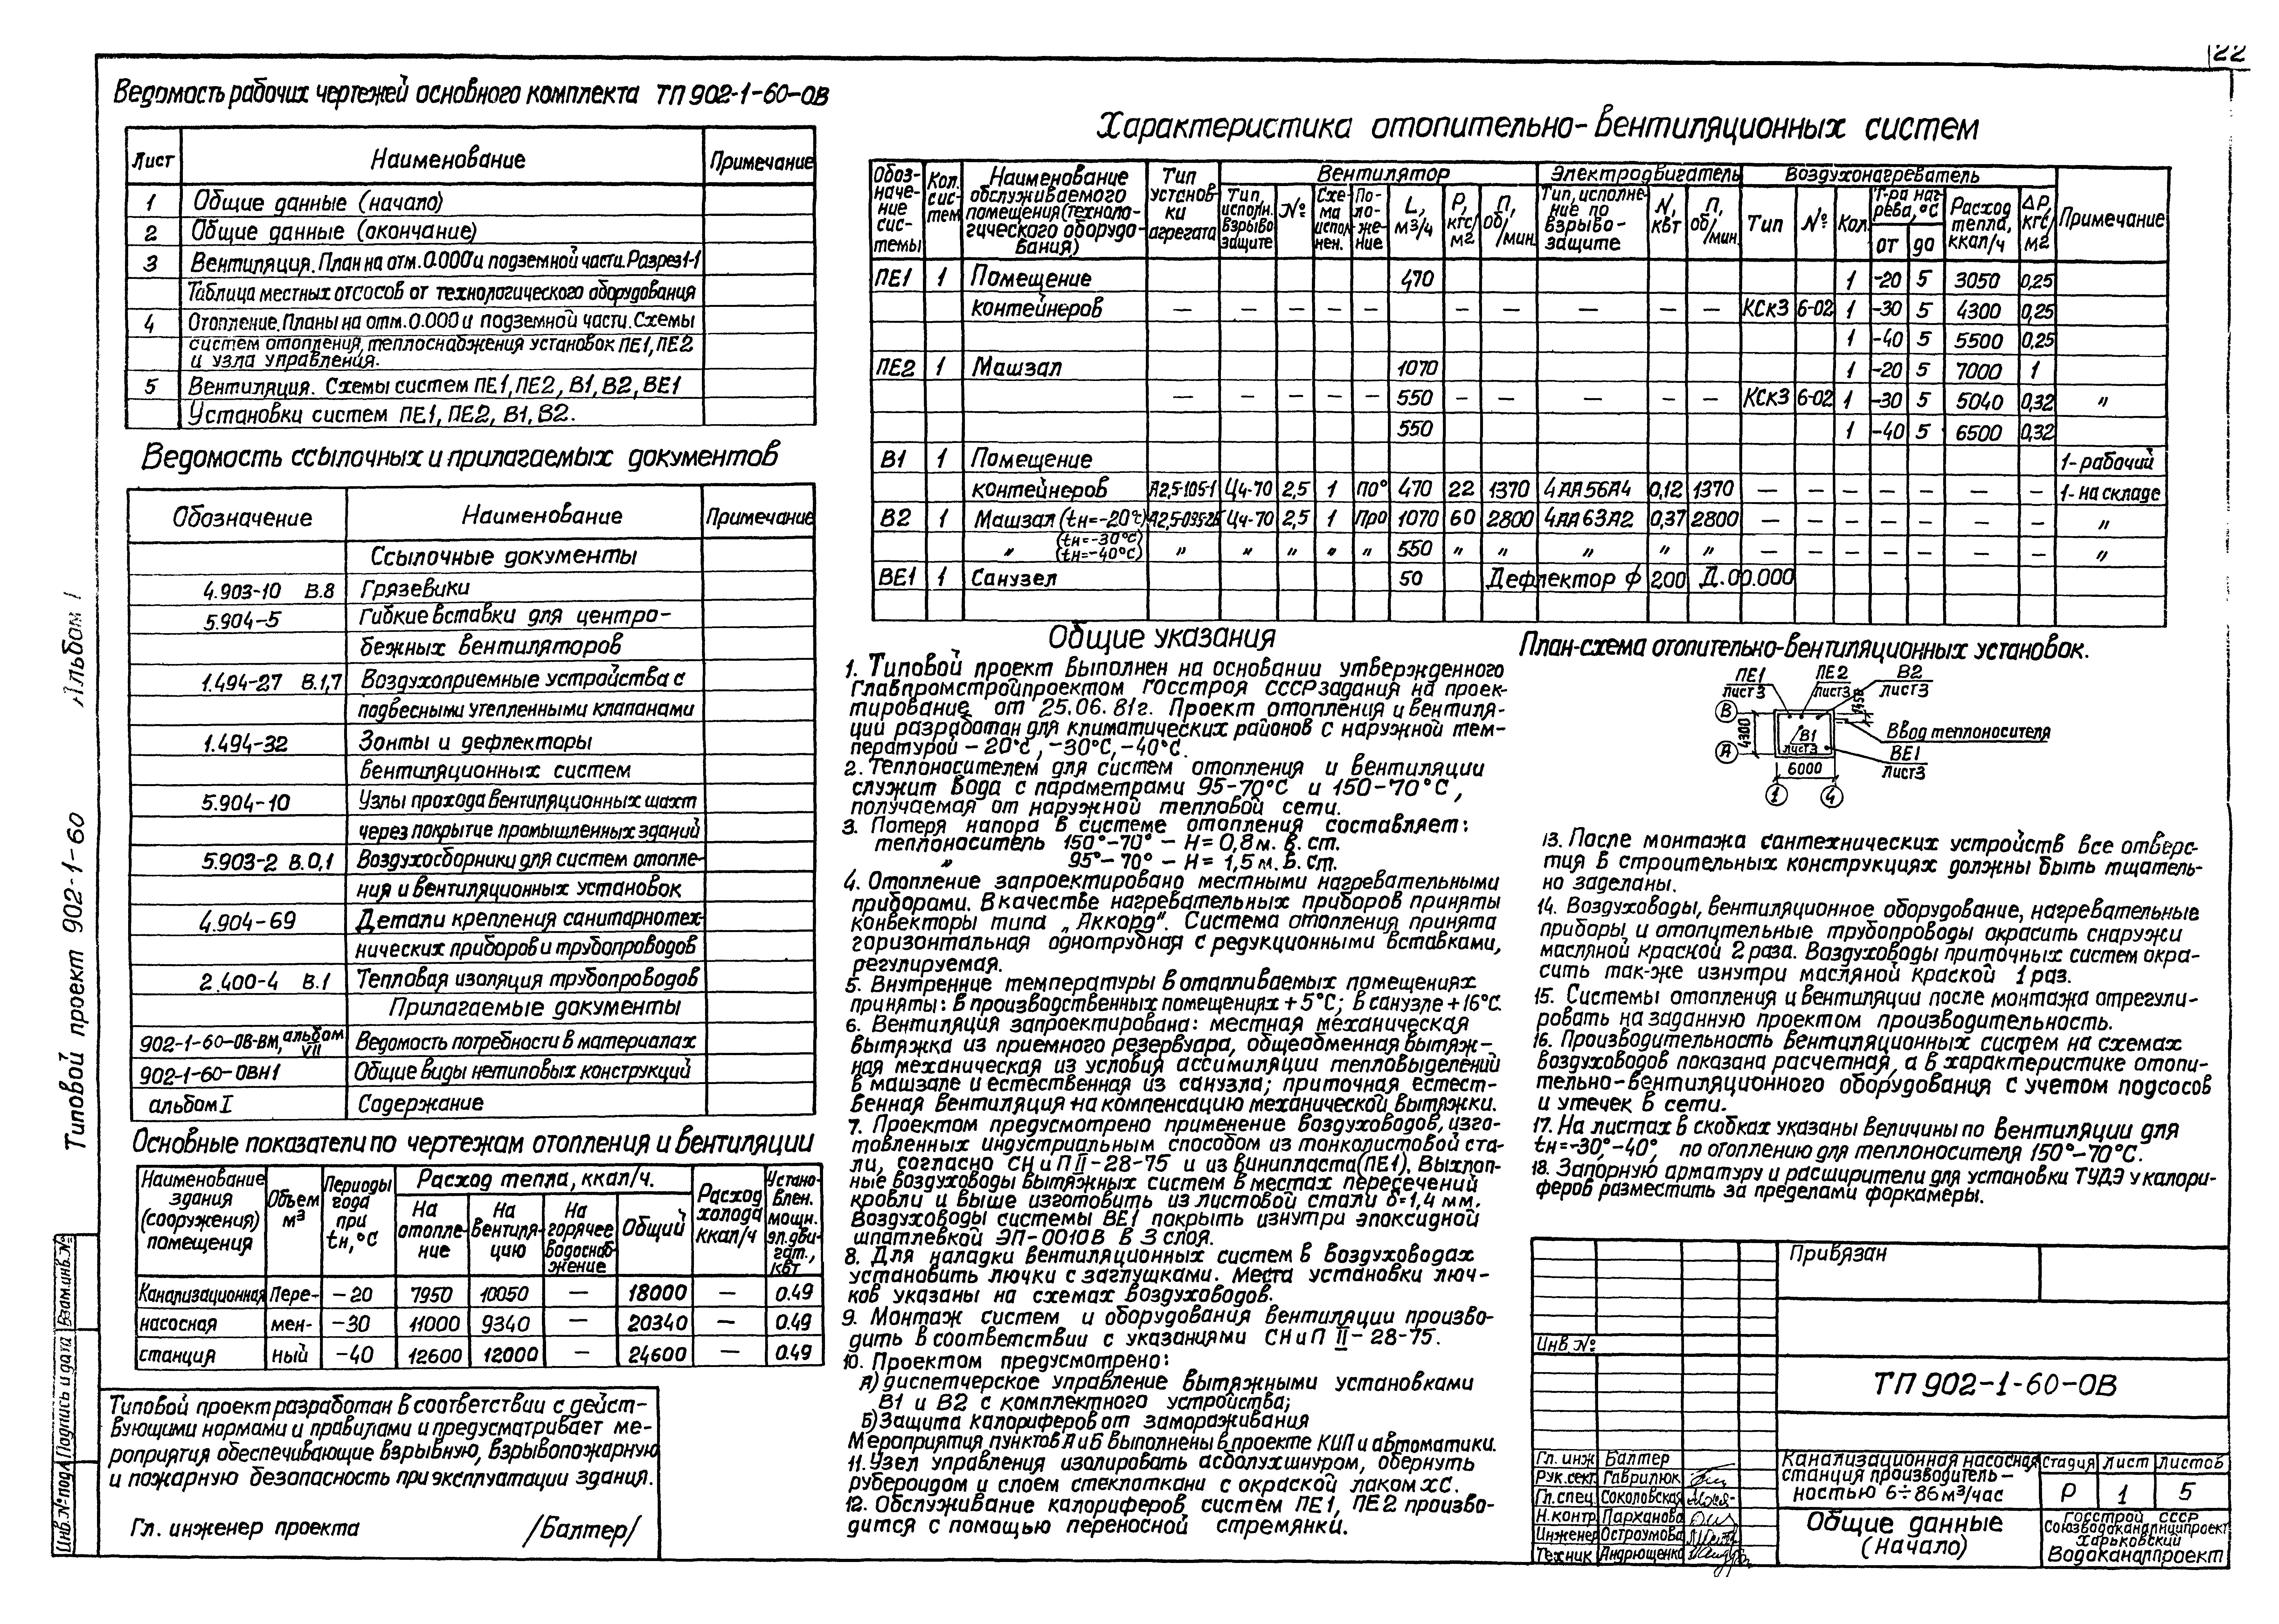 22
Ведомость рабочих чертежей основного комплекта ТП 902-1-60-ОВ
Лист Наименование Примечание
1 Общие данные (начало)
2 Общие данные (окончание)
3 Вентиляция. План на отм. 0.000 и подземной части. Разрез 1-1
Таблица местных отсосов от технологического оборудования
4 Отопление. Планы на отм. 0.000 и подземной части. Схемы
систем отопления, теплоснабжения установок ПЕ1, ПЕ2
и узла управления.
5 Вентиляция. Схемы систем ПЕ1, ПЕ2, В1, В2, ВЕ1
Установки систем ПЕ1, ПЕ2, В1, В2.
Ведомость ссылочных и прилагаемых документов
Обозначение Наименование Примечание
Ссылочные документы
4.903-10 В.8 Грязевики
5.904-5 Гибкие вставки для центро-
бежных вентиляторов
1.494-27 В.1,7 Воздухоприемные устройства с
подвесными утепленными клапанами
1.494-32 Зонты и дефлекторы
вентиляционных систем
5.904-10 Узлы прохода вентиляционных шахт
через покрытие промышленных зданий
5.903-2 В.0,1 Воздухосборники для систем отопле-
ния и вентиляционных установок
4.904-69 Детали крепления санитарнотех-
нических приборов и трубопроводов
2.400-4 В.1 Тепловая изоляция трубопроводов
Прилагаемые документы
902-1-60-ОВ-ВМ, альбом VII Ведомость потребности в материалах
902-1-60-ОВН1 Общие виды нетиповых конструкций
альбом I Содержание
Основные показатели по чертежам отопления и вентиляции
Наименование здания (сооружения) помещения Объем м³ Периоды года при tн, °С Расход тепла, ккал/ч. На отопле-ние На вентиля-цию На горячее водоснаб-жение Общий Расход холода ккал/ч Устано-влен. мощн. эл.дви-гат., квт
Канализационная Пере- -20 7950 10050 — 18000 — 0.49
насосная мен- -30 11000 9340 — 20340 — 0.49
станция ный -40 12600 12000 — 24600 — 0.49
Типовой проект разработан в соответствии с дейст-
вующими нормами и правилами и предусматривает ме-
роприятия обеспечивающие взрывную, взрывопожарную
и пожарную безопасность при эксплуатации здания.
Гл. инженер проекта /Балтер/
Альбом I
Типовой проект 902-1-60
Взам.инв.№
Подпись и дата
Инв.№ подл.
Характеристика отопительно-вентиляционных систем
Обоз-наче-ние сис-темы Кол. сис-тем Наименование обслуживаемого помещения (техноло-гического оборудо-вания) Тип установ-ки агрегата Вентилятор Электродвигатель Воздухонагреватель Примечание
Тип, исполн. взрыво защите № Схе-ма испол нен. По-ло-же-ние L, м³/ч Р, кгс/м² П, об/мин. Тип, исполне-ние по взрыво-защите N, квт П, об/мин. Тип № Кол. Т-ра наг-рева, °С от до Расход тепла, ккал/ч ΔР, кгс/м²
ПЕ1 1 Помещение 470 1 -20 5 3050 0,25
контейнеров — — — — — — — — — — КСк3 6-02 1 -30 5 4300 0,25
1 -40 5 5500 0,25
ПЕ2 1 Машзал 1070 1 -20 5 7000 1
— — — — — 550 — — — — — КСк3 6-02 1 -30 5 5040 0,32 "
550 1 -40 5 6500 0,32
В1 1 Помещение 1- рабочий
контейнеров А2,5-105-1 Ц4-70 2,5 1 П0° 470 22 1370 4АА56А4 0,12 1370 — — — — — — — 1- на складе
В2 1 Машзал (tн=-20°с) Ц4-70 2,5 1 Пр0 1070 60 2800 4АА63А2 0,37 2800 — — — — — — — "
" (tн=-30°С) (tн=-40°С) " " " " " 550 " " " " " — — — — — — — "
ВЕ1 1 Санузел 50 Дефлектор ф 200 Д.00.000
Общие указания
1. Типовой проект выполнен на основании утвержденного
Главпромстройпроектом Госстроя СССР задания на проек-
тирование от 25.06.81г. Проект отопления и вентиля-
ции разработан для климатических районов с наружной тем-
пературой -20°с, -30°С, -40°С.
2. Теплоносителем для систем отопления и вентиляции
служит вода с параметрами 95-70°С и 150-70°С,
получаемая от наружной тепловой сети.
3. Потеря напора в системе отопления составляет:
теплоноситель 150°-70° - Н= 0,8 м. в. ст.
" 95°-70° - Н= 1,5 м. в. ст.
4. Отопление запроектировано местными нагревательными
приборами. В качестве нагревательных приборов приняты
конвекторы типа „Аккорд". Система отопления принята
горизонтальная однотрубная с редукционными вставками,
регулируемая.
5. Внутренние температуры в отапливаемых помещениях
приняты: в производственных помещениях +5°С; в санузле +16°С.
6. Вентиляция запроектирована: местная механическая
вытяжка из приемного резервуара, общеобменная вытяж-
ная механическая из условия ассимиляции тепловыделений
в машзале и естественная из санузла; приточная естест-
венная вентиляция на компенсацию механической вытяжки.
7. Проектом предусмотрено применение воздуховодов, изго-
товленных индустриальным способом из тонколистовой ста-
ли, согласно СН и П II-28-75 и из винипласта (ПЕ1). Выхлоп-
ные воздуховоды вытяжных систем в местах пересечений
кровли и выше изготовить из листовой стали δ=1,4 мм.
Воздуховоды системы ВЕ1 покрыть изнутри эпоксидной
шпатлевкой ЭП-0010В в 3 слоя.
8. Для наладки вентиляционных систем в воздуховодах
установить лючки с заглушками. Места установки люч-
ков указаны на схемах воздуховодов.
9. Монтаж систем и оборудования вентиляции произво-
дить в соответствии с указаниями СН и П II-28-75.
10. Проектом предусмотрено:
А) диспетчерское управление вытяжными установками
В1 и В2 с комплектного устройства;
Б) Защита калориферов от замораживания
Мероприятия пунктов А и Б выполнены в проекте КИП и автоматики.
11. Узел управления изолировать асболухшнуром, обернуть
рубероидом и слоем стеклоткани с окраской лаком ХС.
12. Обслуживание калориферов систем ПЕ1, ПЕ2 произво-
дится с помощью переносной стремянки.
План-схема отопительно-вентиляционных установок.
ПЕ1 лист3
ПЕ2 лист3
В2 лист3
В
А
4300
В1 лист3
Ввод теплоносителя
ВЕ1 лист3
6000
1 4
13. После монтажа сантехнических устройств все отверс-
тия в строительных конструкциях должны быть тщатель-
но заделаны.
14. Воздуховоды, вентиляционное оборудование, нагревательные
приборы и отопительные трубопроводы окрасить снаружи
масляной краской 2 раза. Воздуховоды приточных систем окра-
сить так-же изнутри масляной краской 1 раз.
15. Системы отопления и вентиляции после монтажа отрегули-
ровать на заданную проектом производительность.
16. Производительность вентиляционных систем на схемах
воздуховодов показана расчетная, а в характеристике отопи-
тельно-вентиляционного оборудования с учетом подсосов
и утечек в сети.
17. На листах в скобках указаны величины по вентиляции для
tн=-30°,-40°, по отоплению для теплоносителя 150°-70°С.
18. Запорную арматуру и расширители для установки ТУДЭ у калори-
феров разместить за пределами форкамеры.
Привязан
Инв.№
ТП 902-1-60-ОВ
Гл. инж. Балтер
Рук.сект. Гаврилюк
Гл.спец. Соколовская
Н.контр. Парханова
Инженер Остроумова
Техник Андрющенко
Канализационная насосная
станция производитель-
ностью 6÷86 м³/час
Стадия Лист Листов
Р 1 5
Общие данные
(начало)
Госстрой СССР
Союзводоканалниипроект
Харьковский
Водоканалпроект